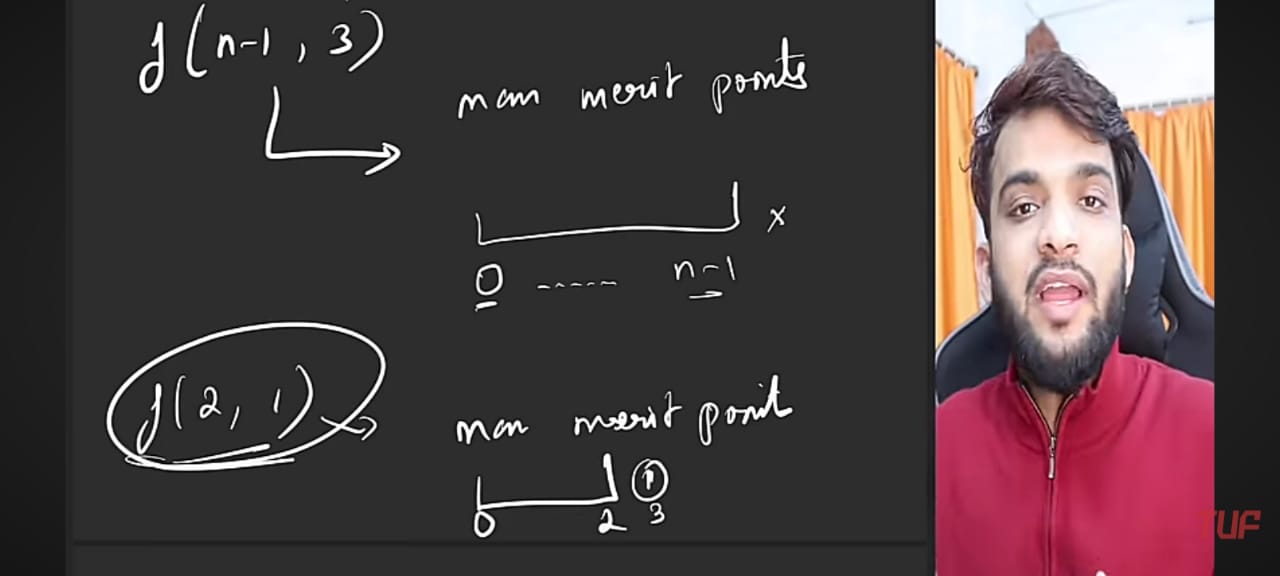 f(n-1, 3)
max merit points
x
0 ------ n-1
f(2, 1)
max merit point
1
0 2 3
TUF